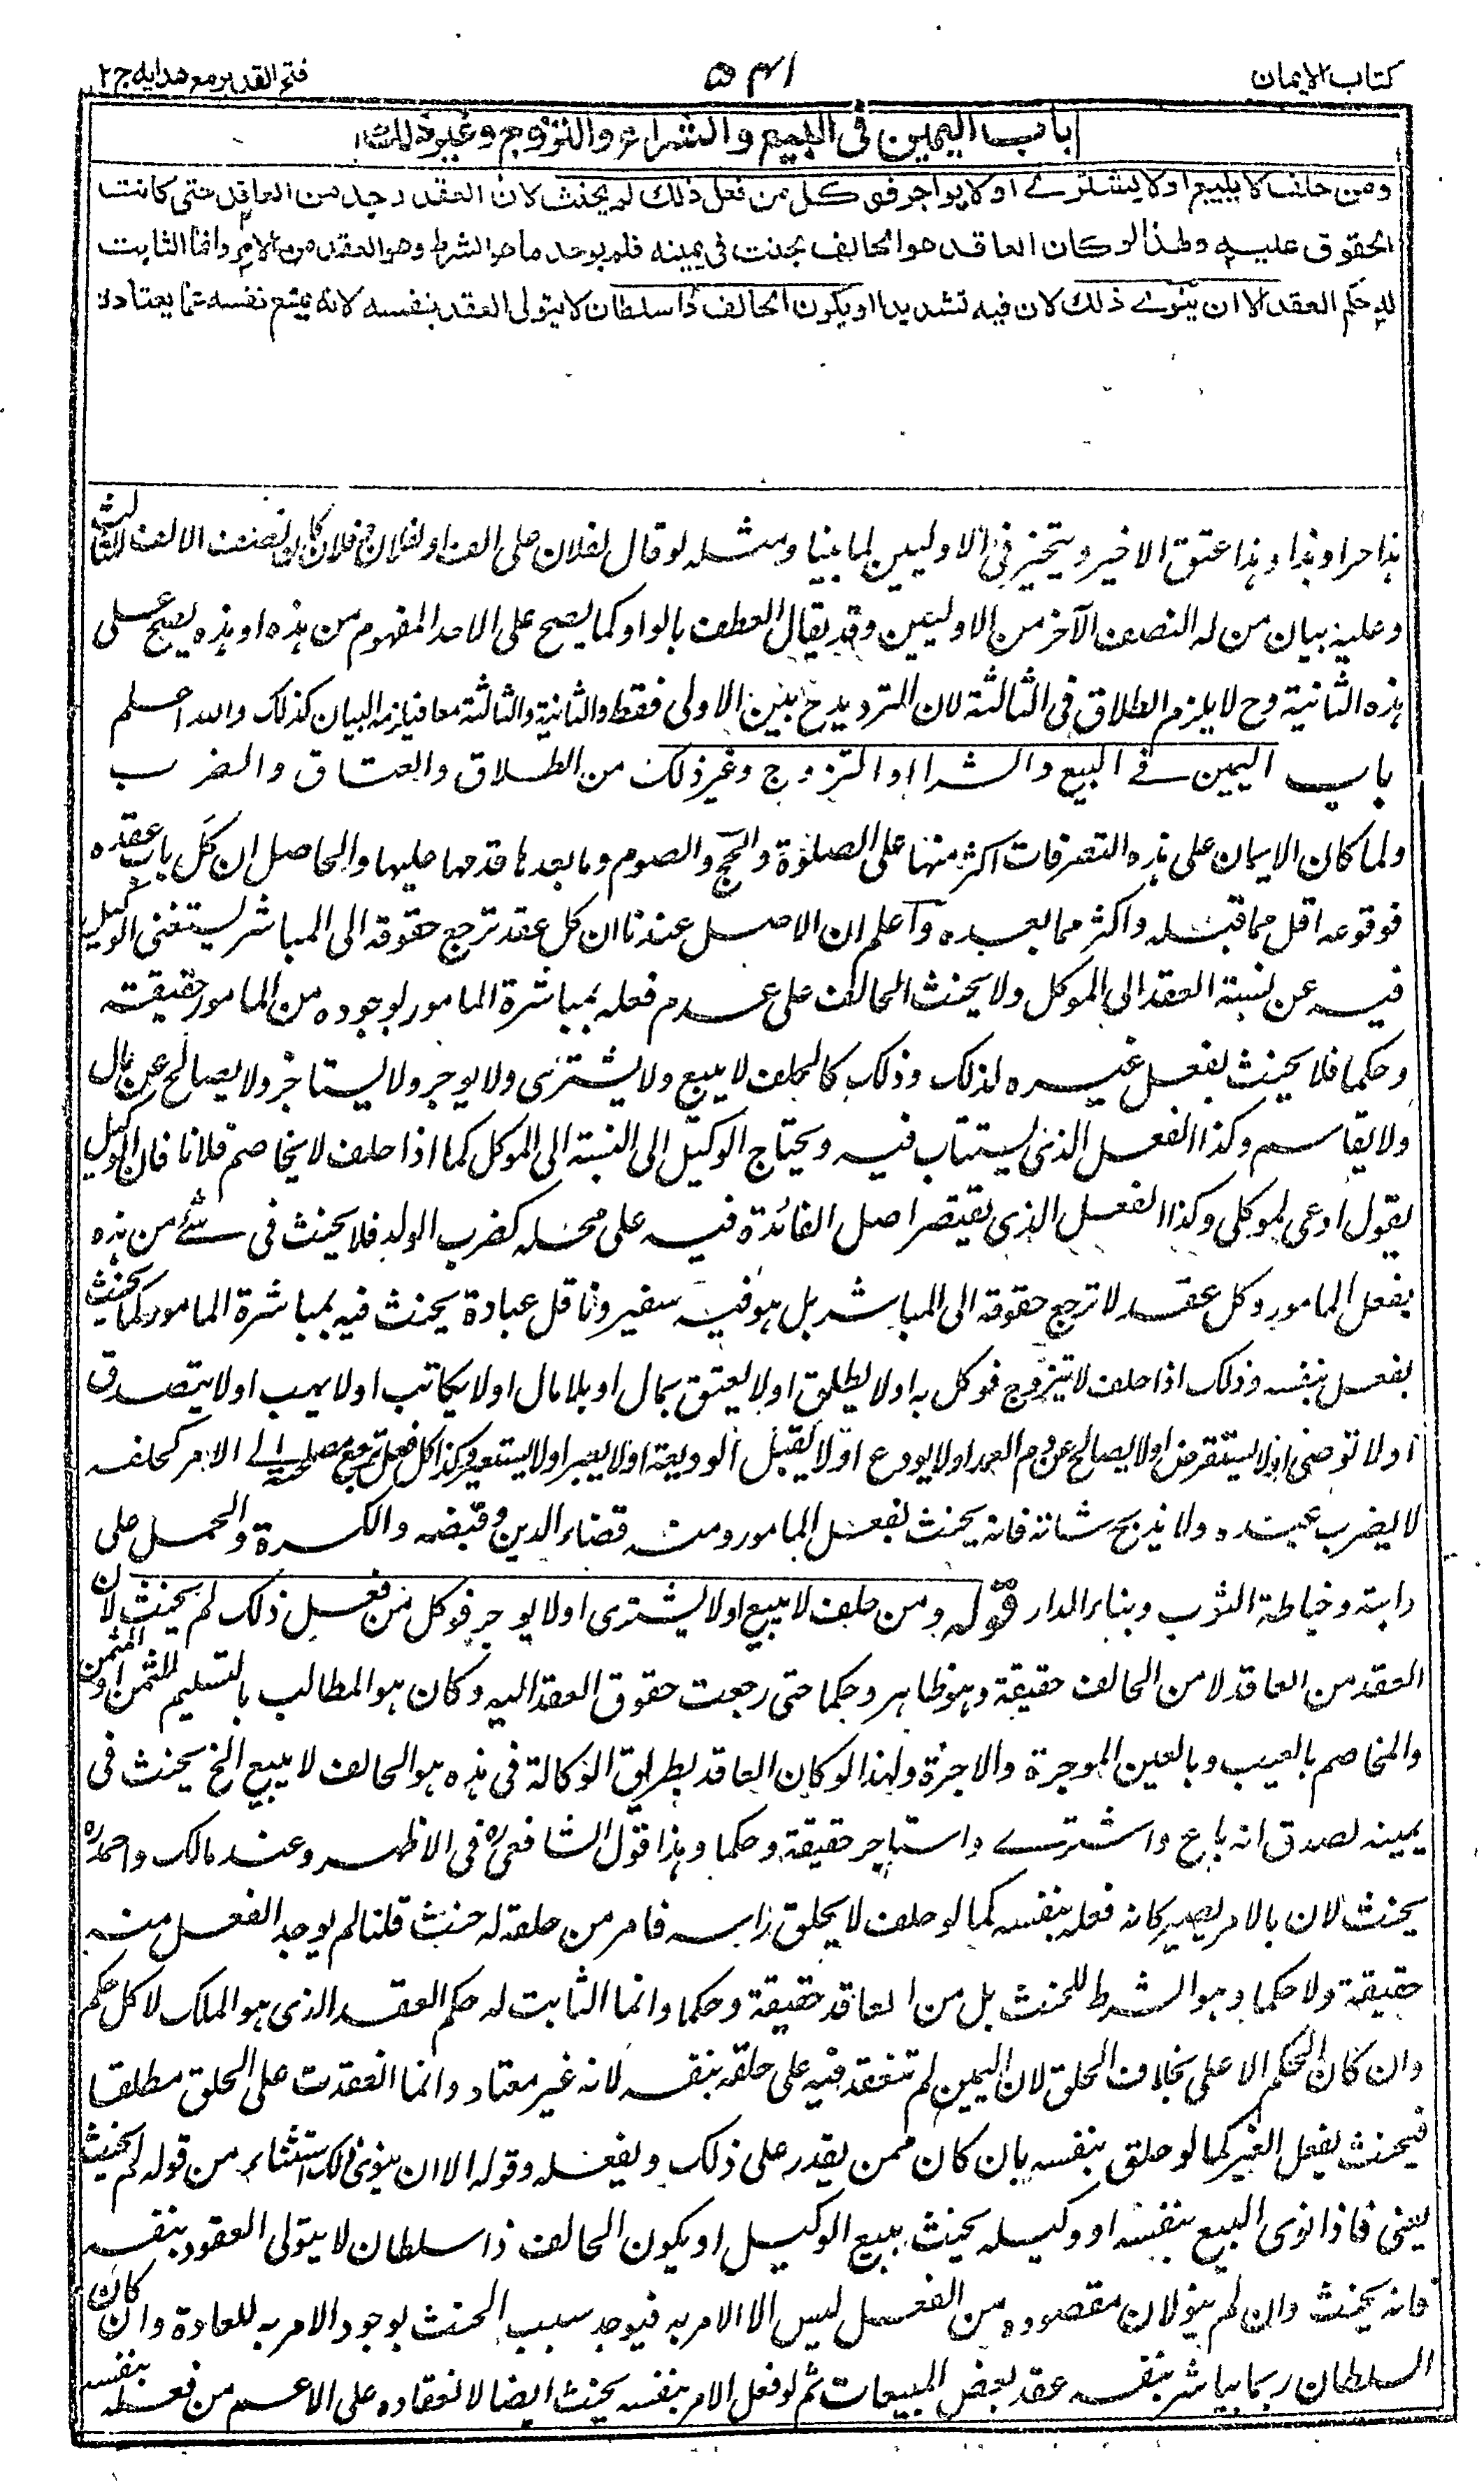 كتاب الايمان
۵۴۱
فتح القدير مع هدايه ج ۲
باب اليمين فى البيع والشراء والتزوج وغير ذلك
ومن حلف لا يبيع او لا يشترے او لا يواجر فوكل من فعل ذلك لم يحنث لان العقد وجد من العاقد حتى كانت
الحقوق عليه ولهذا لو كان العاقد هو الحالف يحنث فى يمينه فلم يوجد ما هو الشرط وهو العقد من الامر وانما الثابت
له حكم العقد الا ان ينوے ذلك لان فيه تشديدا او يكون الحالف ذا سلطان لا يتولى العقد بنفسه لانه يمنع نفسه عما يعتاده
هذا حر او هذا وهذا عتق الاخير ويتخير فى الاوليين لما بينا ومثله لو قال لفلان على الف او لفلان وفلان كان نصف الالف للثالث
وعليه بيان من له النصف الآخر من الاوليين وقد يقال العطف بالواو كما يصح على الاحد المفهوم من هذه او هذه يصح على
هذه الثانية وح لا يلزم الطلاق فى الثالثة لان الترديد ح بين الاولى فقط والثانية والثالثة معا فيلزمه البيان كذلك والله اعلم
باب اليمين فے البيع والشراء والتزوج وغير ذلك من الطلاق والعتاق والضرب
ولما كان الايمان على هذه التصرفات اكثر منها على الصلوة والحج والصوم وما بعدها قدمها عليها والحاصل ان كل باب عقده
فوقوعه اقل مما قبله واكثر مما بعده واعلم ان الاصل عندنا ان كل عقد ترجع حقوقه الى المباشر ليستغنى الوكيل
فيه عن نسبة العقد الى الموكل ولا يحنث الحالف على عدم فعله بمباشرة المامور لوجوده من المامور حقيقته
وحكما فلا يحنث بفعل غيره لذلك وذلك كالحلف لا يبيع ولا يشترى ولا يوجر ولا يستاجر ولا يصالح عن مال
ولا يقاسم وكذا الفعل الذى يستناب فيه ويحتاج الوكيل الى النسبة الى الموكل كما اذا حلف لا يخاصم فلانا فان الوكيل
يقول ادعى لموكلى وكذا الفعل الذى يقتصر اصل الفائدة فيه على محله كضرب الولد فلا يحنث فى شئے من هذه
بفعل المامور وكل عقد لا ترجع حقوقه الى المباشر بل هو فيه سفير وناقل عبارة يحنث فيه بمباشرة المامور كما يحنث
بفعل بنفسه وذلك اذا حلف لا يتزوج فوكل به او لا يطلق او لا يعتق بمال او بلا مال او لا يكاتب او لا يهب او لا يتصدق
او لا توصى او لا يستقرض او لا يصالح عن دم العمد او لا يودع او لا يقبل الوديعة او لا يعير او لا يستعير وكذا كل فعل ترجع مصلحته الے الامر كحلفه
لا يضرب عبده ولا يذبح شاته فانه يحنث بفعل المامور ومنه قضاء الدين وقبضه والكسوة والحمل على
دابته وخياطة الثوب وبناء الدار قوله ومن حلف لا يبيع او لا يشترى او لا يوجر فوكل من فعل ذلك لم يحنث لان
العقد من العاقد لا من الحالف حقيقة وهو ظاهر وحكما حتى رجعت حقوق العقد اليه وكان هو المطالب بالتسليم للثمن او المثمن
والمخاصم بالعيب وبالعين الموجرة والاجرة ولهذا لو كان العاقد بطريق الوكالة فى هذه هو الحالف لا يبيع الخ يحنث فى
يمينه لصدق انه باع واشترے واستاجر حقيقة وحكما وهذا قول الشافعى ره فى الاظهر وعند مالك واحمد ره
يحنث لان بالامر يصير كانه فعله بنفسه كما لو حلف لا يحلق راسه فامر من حلقه له حنث قلنا لم يوجد الفعل منه
حقيقة ولا حكما وهو الشرط للحنث بل من العاقد حقيقة وحكما وانما الثابت له حكم العقد الذى هو الملك لا كل حكم
وان كان الحكم الاعلى بخلاف الحلق لان اليمين لم تنعقد فيه على حلقه بنفسه لانه غير معتاد وانما انعقدت على الحلق مطلقا
فيحنث بفعل الغير كما لو حلق بنفسه بان كان ممن يقدر على ذلك ويفعله وقوله الا ان ينوى ذلك استثناء من قوله لم يحنث
يعنى فاذا نوى البيع بنفسه او وكيله يحنث ببيع الوكيل او يكون الحالف ذا سلطان لا يتولى العقود بنفسه
فانه يحنث وان لم ينو لان مقصوده من الفعل ليس الا الامر به فيوجد سبب الحنث بوجود الامر به للعادة وان كان
السلطان ربما يباشر بنفسه عقد بعض المبيعات ثم لو فعل الامر بنفسه يحنث ايضا لانعقاده على الاعم من فعله بنفسه